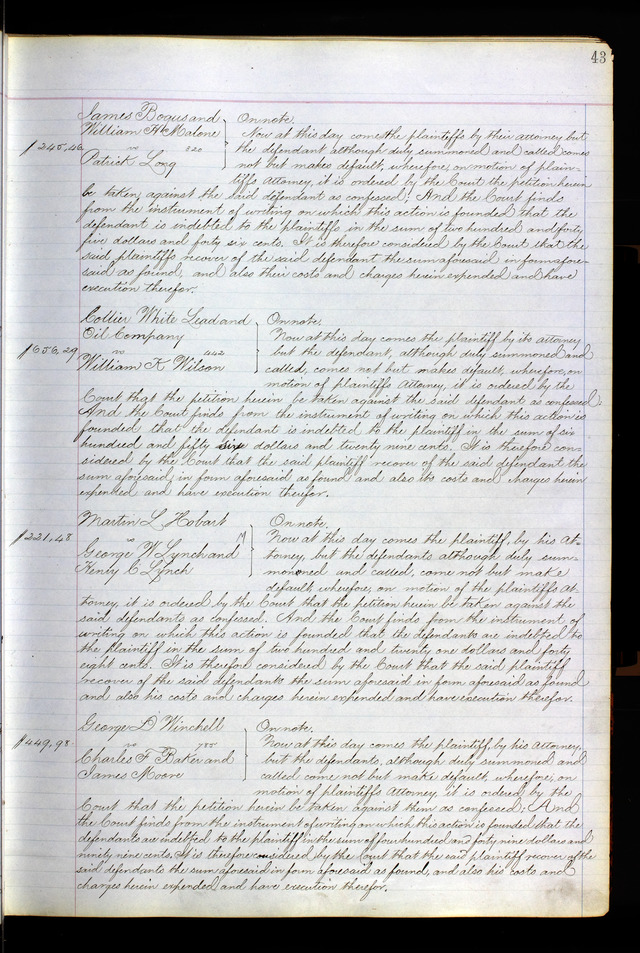 43
James Bogus and } On note.
William H. Malone Now at this day come the plaintiffs by their attorney but
$245,46 vs 320 the defendant although duly summoned and called comes
Patrick Long not but makes default, wherefore, on motion of plain-
tiffs Attorney, it is ordered by the Court the petition herein
be taken against the said defendant as confessed; And the Court finds
from the instrument of writing on which this action is founded that the
defendant is indebted to the plaintiffs in the sum of two hundred and forty
five dollars and forty six cents. It is therefore considered by the Court that the
said plaintiffs recover of the said defendant the sum aforesaid in form afore-
said as found, and also their costs and charges herein expended and have
execution therefor.
Collier White Lead and } On note.
Oil Company Now at this day comes the plaintiff by its attorney
$656,29 vs 442 but the defendant, although duly summoned and
William K Wilson called, comes not but makes default, wherefore, on
motion of plaintiffs Attorney, it is ordered by the
Court that the petition herein be taken against the said defendant as confessed;
And the Court finds from the instrument of writing on which this action is
founded that the defendant is indebted to the plaintiff in the sum of six
hundred and fifty six dollars and twenty nine cents. It is therefore con-
sidered by the Court that the said plaintiff recover of the said defendant the
sum aforesaid in form aforesaid as found and also its costs and charges herein
expended and have execution therefor.
Martin L Hobart } On note.
$221,48 vs Now at this day comes the plaintiff, by his At-
George W Lynch and 19 torney, but the defendants although duly sum-
Henry C Lynch moned and called, come not but make
default, wherefore, on motion of the plaintiffs At-
torney, it is ordered by the Court that the petition herein be taken against the
said defendants as confessed. And the Court finds from the instrument of
writing on which this action is founded that the defendants are indebted to
the plaintiff in the sum of two hundred and twenty one dollars and forty
eight cents. It is therefore considered by the Court that the said plaintiff
recover of the said defendants the sum aforesaid in form aforesaid as found
and also his costs and charges herein expended and have execution therefor.
George D Winchell } On note.
$449,98 vs Now at this day comes the plaintiff, by his Attorney,
Charles F Baker and but the defendants, although duly summoned and
James Moore called come not but make default, wherefore, on
motion of plaintiffs Attorney, it is ordered by the
Court that the petition herein be taken against them as confessed; And
the Court finds from the instrument of writing on which this action is founded that the
defendants are indebted to the plaintiff in the sum of four hundred and forty nine dollars and
ninety nine cents. It is therefore considered by the Court that the said plaintiff recover of the
said defendants the sum aforesaid in form aforesaid as found, and also his costs and
charges herein expended and have execution therefor.